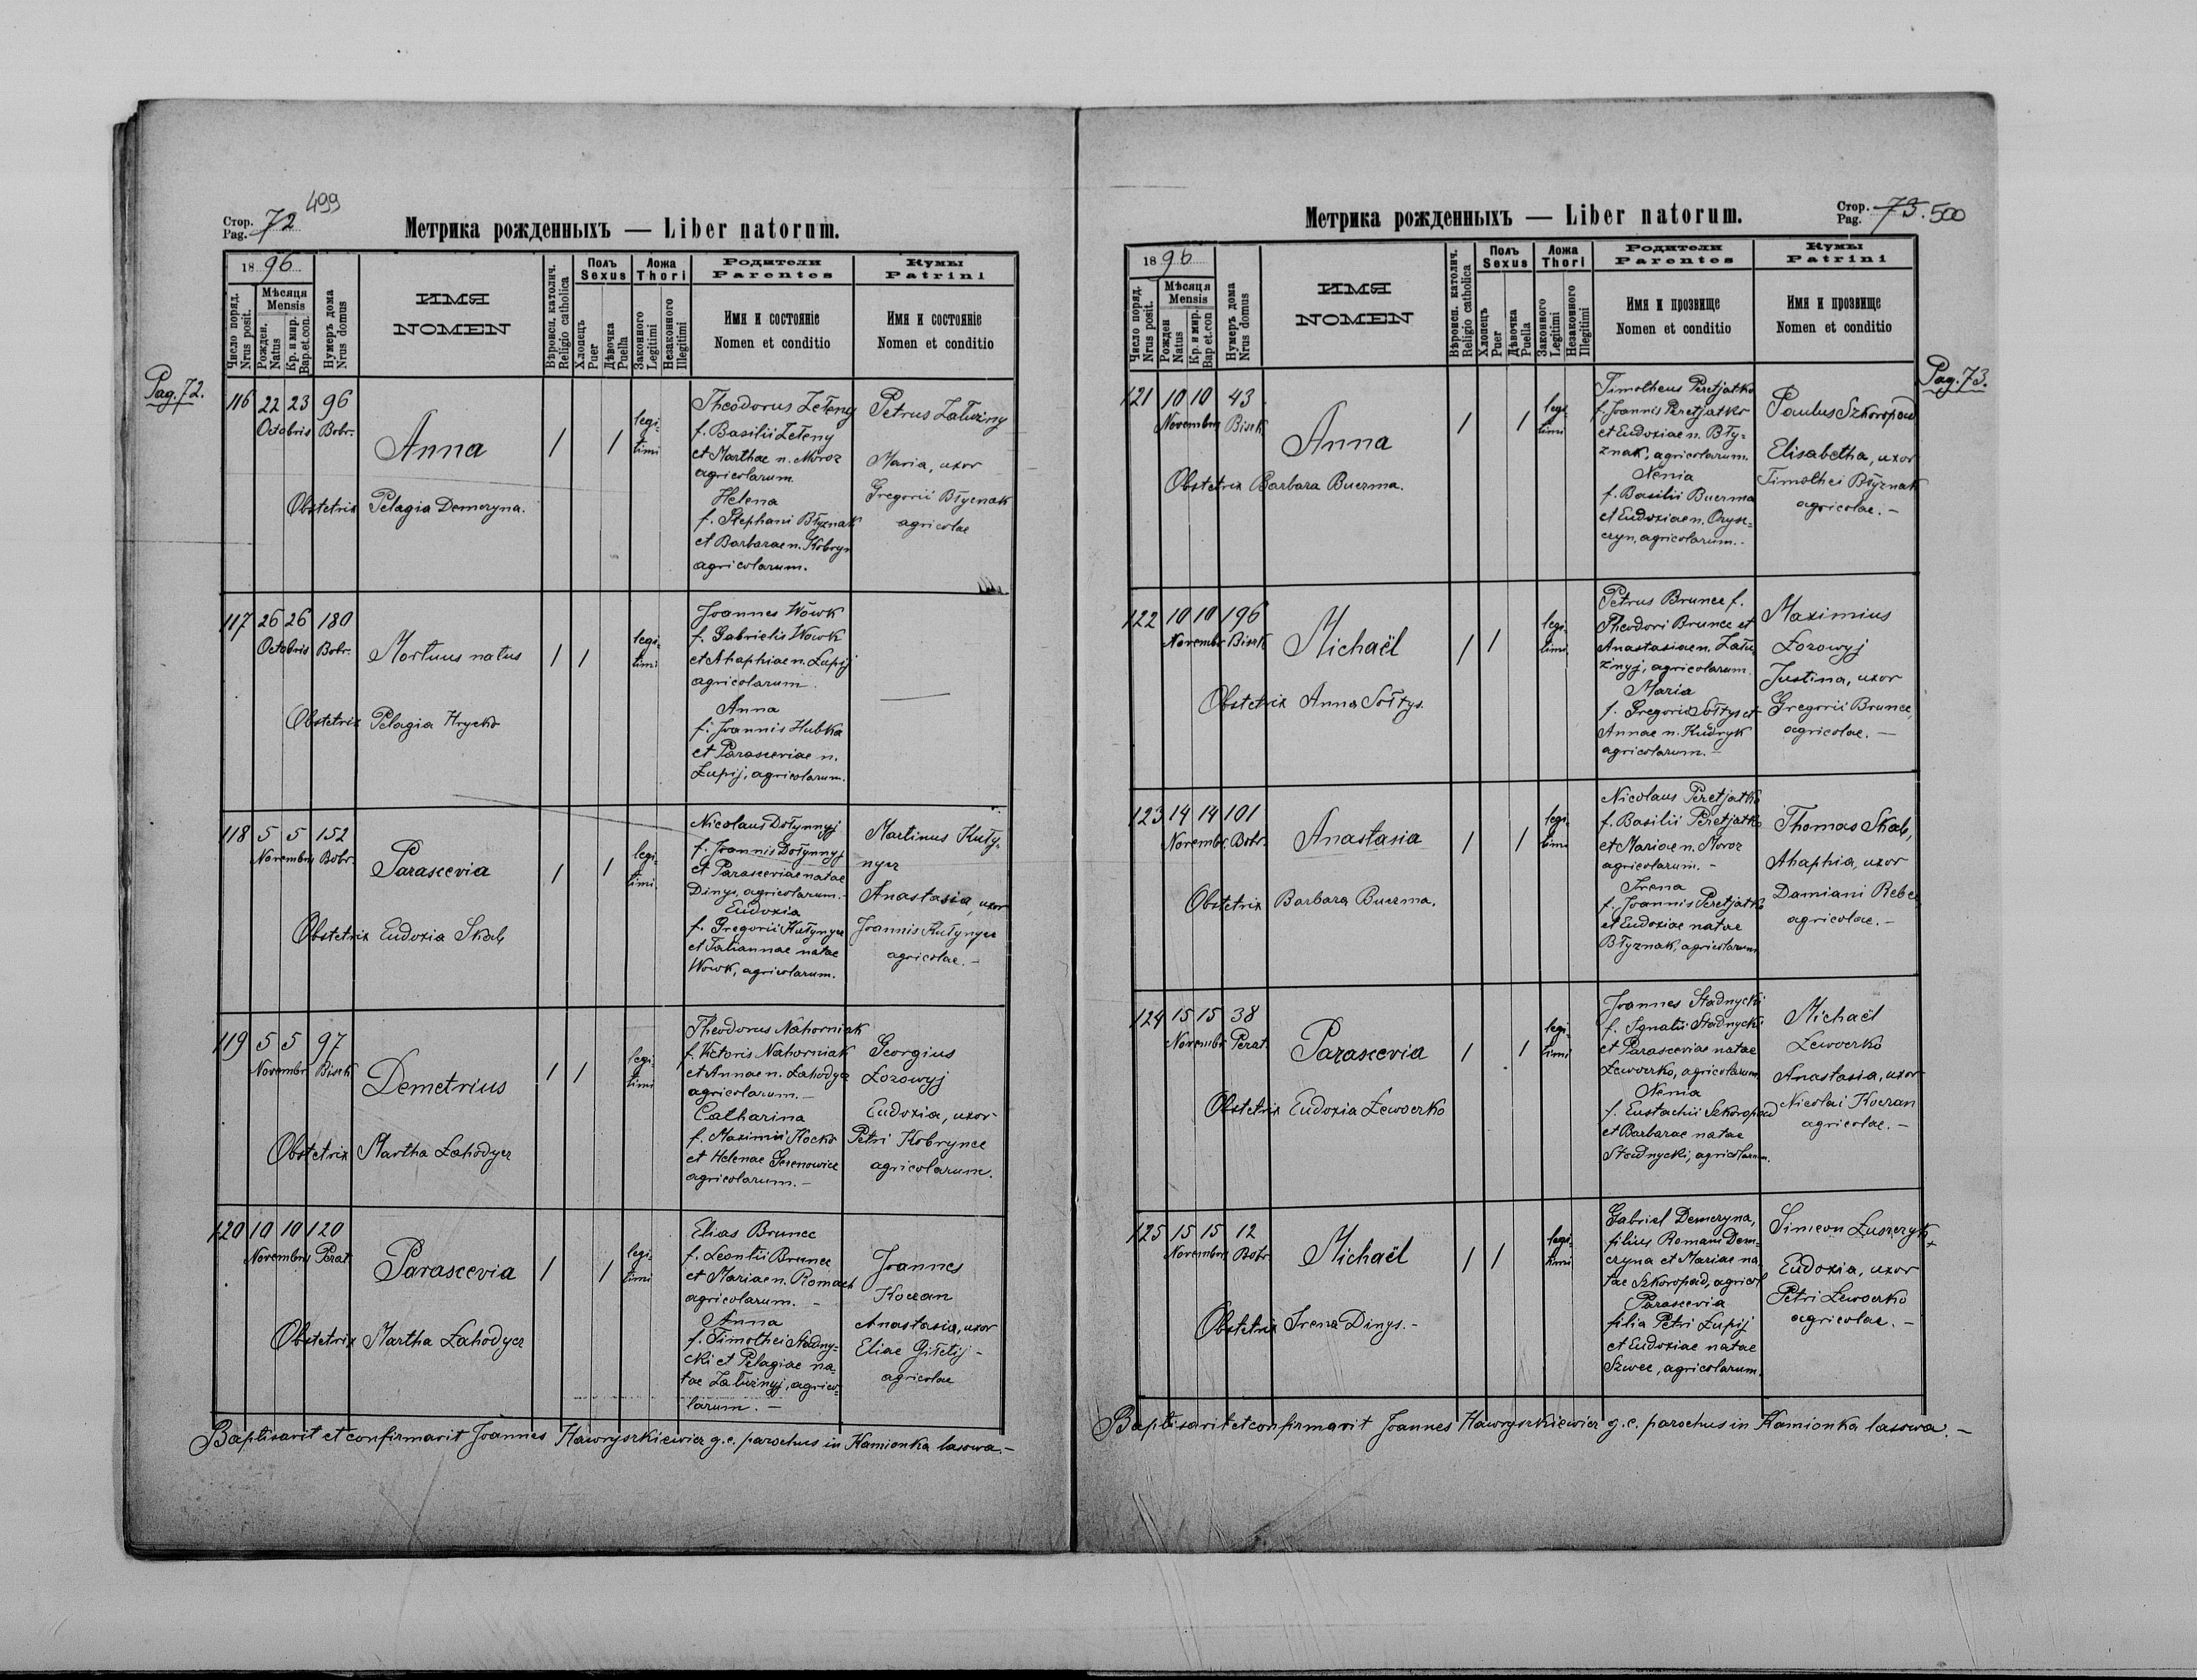 499
Стор. Pag. 72
Метрика рожденныхъ — Liber natorum.
1896
Число поряд. Nrus posit.
Мѣсяця Mensis
Рожден. Natus
Кр. и мир. Bap.et.con.
Нумеръ дома Nrus domus
ИМЯ
NOMEN
Вѣроисп. католич. Religio catholica
Полъ Sexus
Хлопецъ Puer
Дѣвочка Puella
Ложа Thori
Законного Legitimi
Незаконного Illegitimi
Родители
Parentes
Имя и состояніе
Nomen et conditio
Кумы
Patrini
Имя и состояніе
Nomen et conditio
Pag. 72.
116 22 23 96
Octobris Bobr.
Anna
/ /
legi-
timi
Obstetrix Pelagia Demczyna.
Theodorus Zełeny
f. Basilii Zełeny
et Marthae n. Moroz
agricolarum.
Helena
f. Stephani Błyznak
et Barbarae n. Kobryn
agricolarum.
Petrus Załużny
Maria, uxor
Gregorii Błyznak
agricolae
117 26 26 180
Octobris Bobr.
Mortuus natus
/ /
legi-
timi
Obstetrix Pelagia Hrycko
Joannes Wowk
f. Gabrielis Wowk
et Ahaphiae n. Łupij
agricolarum.
Anna
f. Joannis Hubka
et Parasceviae n.
Łupij, agricolarum.
118 5 5 152
Novembris Bobr.
Parascevia
/ /
legi-
timi.
Obstetrix Eudoxia Skab
Nicolaus Dołynnyj
f. Joannis Dołynnyj
et Parasceviae natae
Dinys, agricolarum.
Eudoxia
f. Gregorii Kułynycz
et Tatiannae natae
Wowk, agricolarum.
Martinus Kuły-
nycz
Anastasia, uxor
Joannis Kułynycz
agricolae. -
119 5 5 97
Novembr. Bisck
Demetrius
/ /
legi-
timi
Obstetrix Martha Łahodycz
Theodorus Nahorniak
f. Victoris Nahorniak
et Annae n. Łahodycz
agricolarum. -
Catharina
f. Maximii Kocko
et Helenae
agricolarum. -
Georgius
Łozowyj
Eudoxia, uxor
Petri Kobrynce
agricolarum.
120 10 10 120
Novembris Perat.
Parascevia
/ /
legi-
timi
Obstetrix Martha Łahodycz
Elias Brunec
f. Leontii Brunec
et Mariae n. Romach
agricolarum. -
Anna
f. Timothei Stadny-
cki et Pelagiae na-
tae Załużnyj, agrico-
larum. -
Joannes
Koczan
Anastasia, uxor
Eliae Giłetij -
agricolae
Baptisavit et confirmavit Joannes Hawryszkiewicz g.c. parochus in Kamionka lasowa. -
Метрика рожденныхъ — Liber natorum.
Стор. Pag. 73. 500
1896
Число поряд. Nrus posit.
Мѣсяця Mensis
Рожден Natus
Кр. и мир. Bap et.con
Нумеръ дома Nrus domus
ИМЯ
NOMEN
Вѣроисп. католич. Religio catholica
Полъ Sexus
Хлопецъ Puer
Дѣвочка Puella
Ложа Thori
Законного Legitimi
Незаконного Illegitimi
Родители
Parentes
Имя и прозвище
Nomen et conditio
Кумы
Patrini
Имя и прозвище
Nomen et conditio
Pag. 73.
121 10 10 43
Novembris Bisck
Anna
/ /
legi-
timi
Obstetrix Barbara Buczma.
Timotheus Peretjatko
f. Joannis Peretjatko
et Eudoxiae n. Bły-
znak, agricolarum.
Xenia
f. Basilii Buczma
et Eudoxiae n. Orysz-
czyn, agricolarum. -
Paulus Szkoropad
Elisabetha, uxor
Timothei Błyznak
agricolae. -
122 10 10 196
Novembr. Bisck
Michaël
/ /
legi-
timi.
Obstetrix Anna Sołtys.
Petrus Brunec f.
Theodori Brunec et
Anastasiae n. Zału-
żnyj, agricolarum.
Maria
f. Gregorii Sołtys et
Annae n. Kudryk
agricolarum. -
Maximius
Łozowyj
Justina, uxor
Gregorii Brunec,
agricolae. -
123 14 14 101
Novembr. Bobr.
Anastasia
/ /
legi-
timi
Obstetrix Barbara Buczma.
Nicolaus Peretjatko
f. Basilii Peretjatko
et Mariae n. Moroz
agricolarum. -
Irena
f. Joannis Peretjatko
et Eudoxiae natae
Błyznak, agricolarum
Thomas Skab,
Ahaphia, uxor
Damiani
agricolae. -
124 15 15 38
Novembr. Perat.
Parascevia
/ /
legi-
timi
Obstetrix Eudoxia Lewoczko
Joannes Stadnycki
f. Ignatii Stadnycki
et Parasceviae natae
Lewoczko, agricolarum
Xenia
f. Eustachii Szkoropad
et Barbarae natae
Stadnycki, agricolarum.
Michaël
Lewoczko
Anastasia, uxor
Nicolai Koczan
agricolae. -
125 15 15 12
Novembris Bobr.
Michaël
/ /
legi-
timi
Obstetrix Irena Dinys. -
Gabriel Demczyna,
filius Romani Dem-
czyna et Mariae na-
tae Szkoropad, agricol
Parascevia
filia Petri Łupij
et Eudoxiae natae
Szwec, agricolarum.
Simeon
Eudoxia, uxor
Petri Lewoczko
agricolae. -
Baptisavit et confirmavit Joannes Hawryszkiewicz g.c. parochus in Kamionka lasowa. -